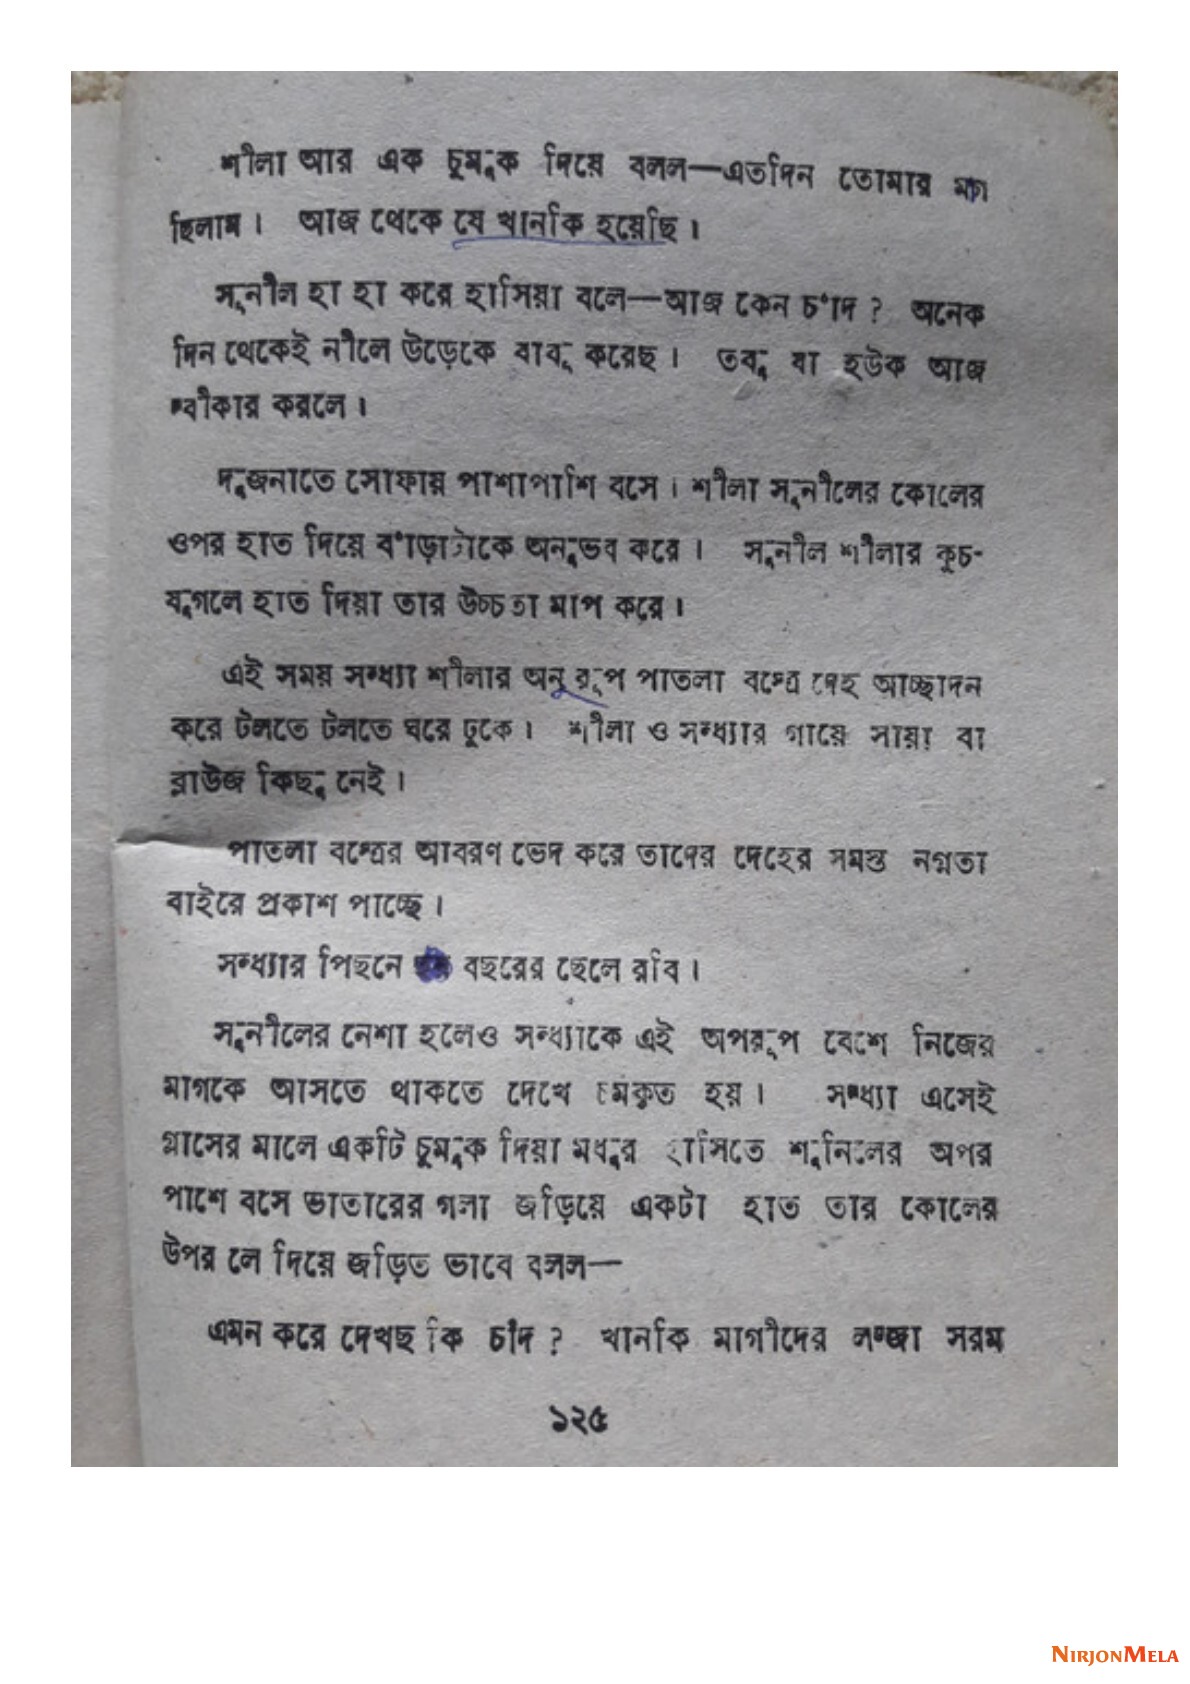 শীলা আর এক চুমুক দিয়ে বলল—এতদিন তোমার
ছিলাম। আজ থেকে যে খানকি হয়েছি।
সুনীল হা হা করে হাসিয়া বলে—আজ কেন চাঁদ? অনেক
দিন থেকেই নীলে উড়েকে বাবু করেছ। তবু যা হউক আজ
স্বীকার করলে।
দুজনাতে সোফায় পাশাপাশি বসে। শীলা সুনীলের কোলের
ওপর হাত দিয়ে বাঁড়াটাকে অনুভব করে। সুনীল শীলার কুচ-
যুগলে হাত দিয়া তার উচ্চতা মাপ করে।
এই সময় সন্ধ্যা শীলার অনুরূপ পাতলা বস্ত্রে দেহ আচ্ছাদন
করে টলতে টলতে ঘরে ঢুকে। শীলা ও সন্ধ্যার গায়ে সায়া বা
ব্লাউজ কিছু নেই।
পাতলা বস্ত্রের আবরণ ভেদ করে তাদের দেহের সমস্ত নগ্নতা
বাইরে প্রকাশ পাচ্ছে।
সন্ধ্যার পিছনে বছরের ছেলে রবি।
সুনীলের নেশা হলেও সন্ধ্যাকে এই অপরূপ বেশে নিজের
মাগকে আসতে থাকতে দেখে চমকৃত হয়। সন্ধ্যা এসেই
গ্লাসের মালে একটি চুমুক দিয়া মধুর হাসিতে শুনিলের অপর
পাশে বসে ভাতারের গলা জড়িয়ে একটা হাত তার কোলের
উপর লে দিয়ে জড়িত ভাবে বলল—
এমন করে দেখছ কি চাঁদ? খানকি মাগীদের লজ্জা সরম
১২৫
NIRJONMELA